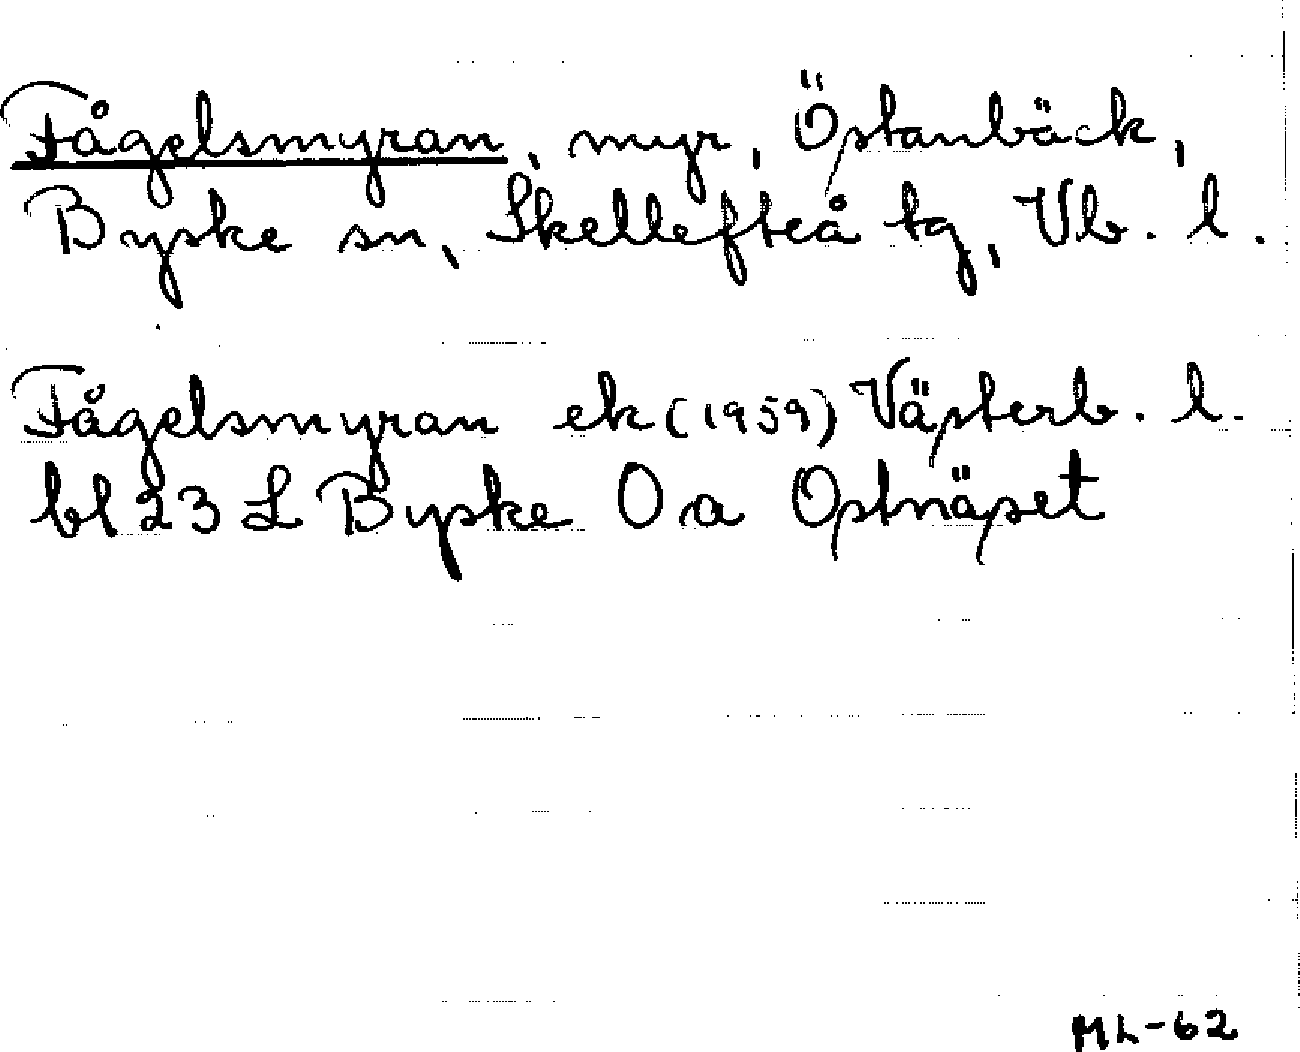 Fågelsmyran, myr, Östanbäck,
Byske sn, Skellefteå tg, Vb. l.
Fågelsmyran ek (1959) Västerb. l.
bl 23 L Byske O a Ostnäset
ML-62